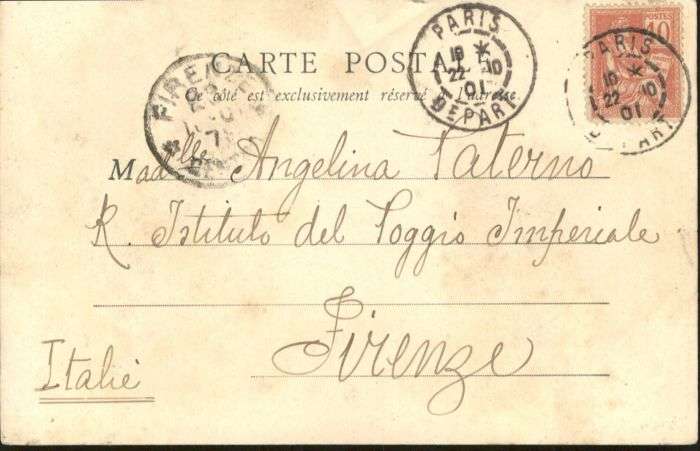 CARTE POSTALE
Ce côté est exclusivement réservé à l'adresse.
PARIS
18 *
22 10
01
DEPART
POSTES
10
PARIS
18 *
22 10
01
DEPART
FIRENZE
Madelle Angelina Paterno
R. Istituto del Poggio Imperiale
Firenze
Italie